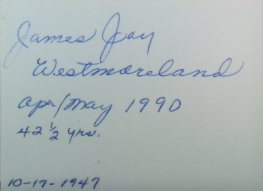 James Jay
Westmoreland
Apr/May 1990
42 ½ yrs.
10-17-1947